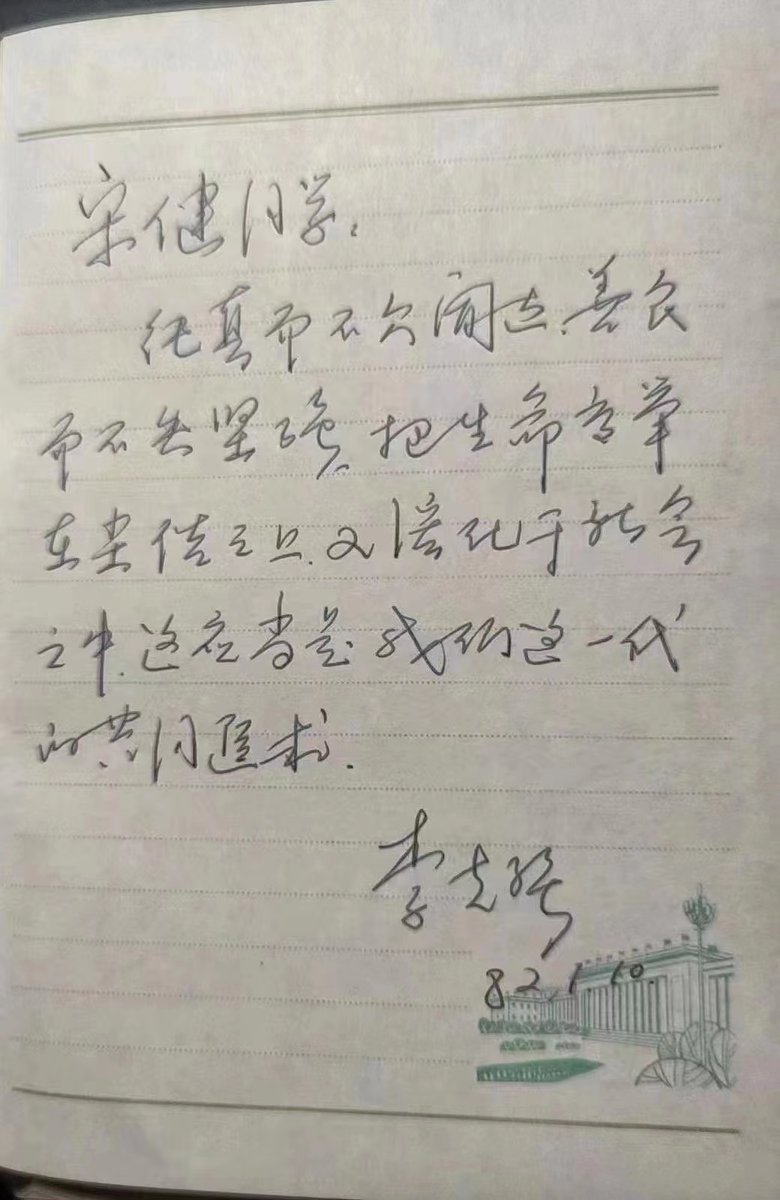 宋健同学：
纯真而不欠阅达、善良
而不失坚强、把生命高举
在尘俗之上、又溶化于社会
之中、这应当是我们这一代
的共同追求.
李克强
82.1.10.